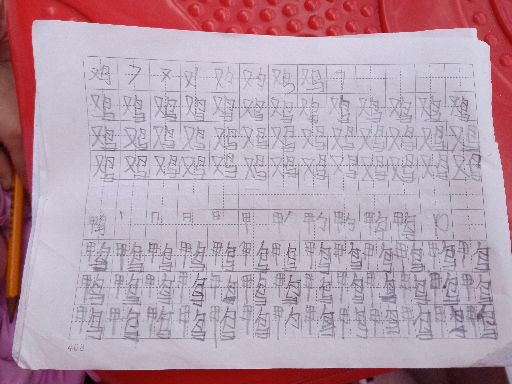 鸡 フ 又 鸡 鸡
鸡 鸡 鸡 鸡 鸡 鸡 鸡 鸡 鸡 鸡 鸡 鸡 鸡
鸡 鸡 鸡 鸡 鸡 鸡 鸡 鸡 鸡 鸡 鸡 鸡 鸡
鸡 鸡 鸡 鸡 鸡 鸡 鸡 鸡 鸡 鸡 鸡 鸡 鸡
鸭 丨 冂 日 甲 鸭 鸭
鸭 鸭 鸭 鸭 鸭 鸭 鸭 鸭 鸭 鸭 鸭 鸭 鸭
鸭 鸭 鸭 鸭 鸭 鸭 鸭 鸭 鸭 鸭 鸭 鸭 鸭
鸭 鸭 鸭 鸭 鸭 鸭 鸭 鸭 鸭 鸭 鸭 鸭 鸭
408